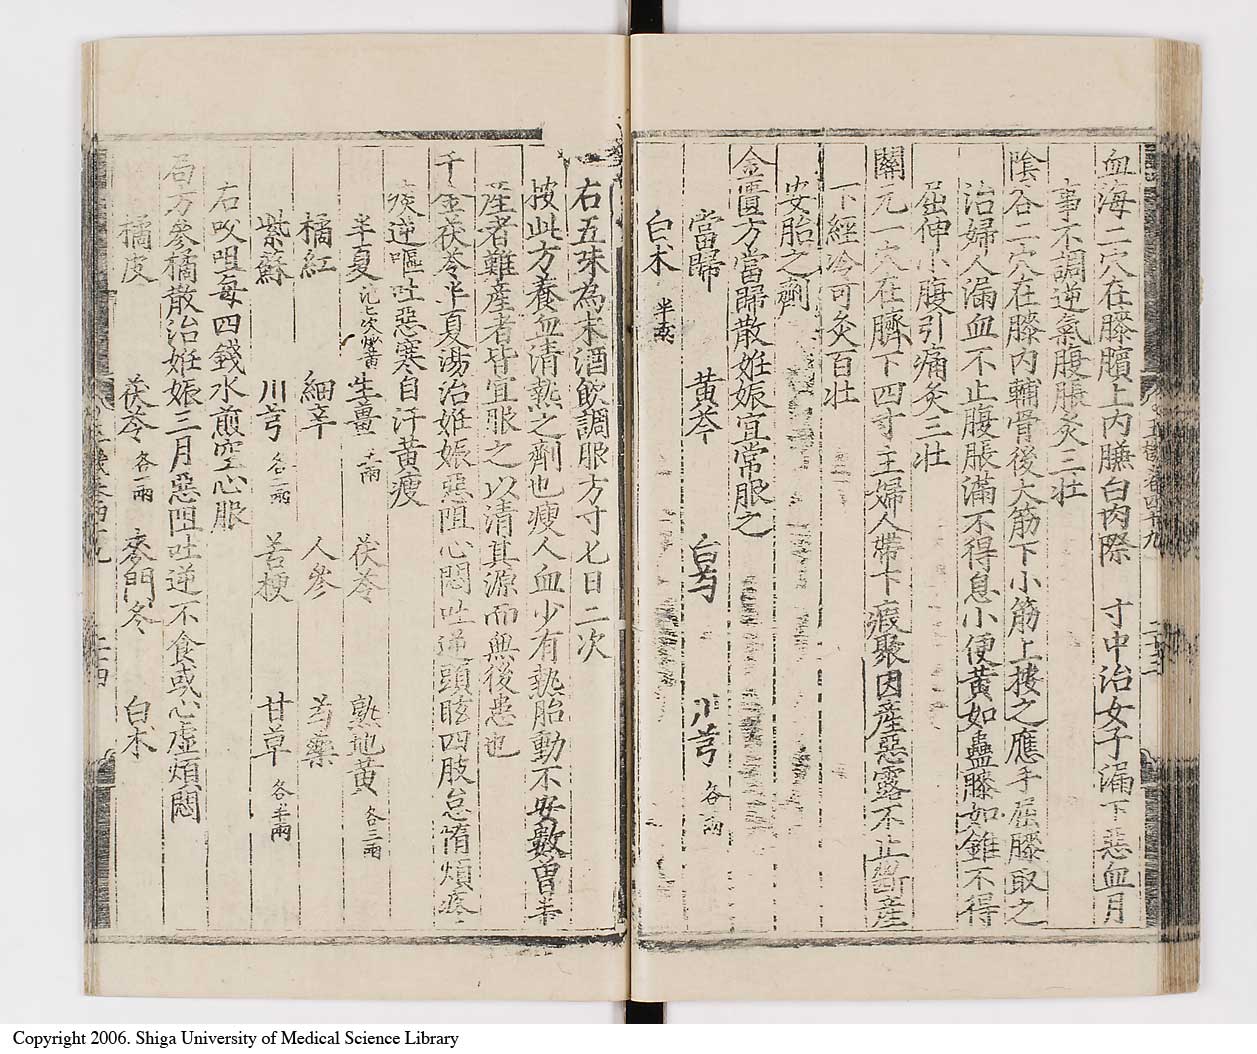 血海二穴在膝臏上內臁白肉際 寸中治女子漏下惡血月
事不調逆氣腹脹灸三壯
陰谷二穴在膝內輔骨後大筋下小筋上按之應手屈膝取之
治婦人漏血不止腹脹滿不得息小便黃如蠱膝如錐不得
屈伸小腹引痛灸三壯
關元一穴在臍下四寸主婦人帶下瘕聚因產惡露不止斷產
下經冷可灸百壯
安胎之劑
金匱方當歸散姙娠宜常服之
當歸 黃芩 白芍 川芎 各一兩
白朮 半兩
右五味為末酒飲調服方寸匕日二次
按此方養血清熱之劑也瘦人血少有熱胎動不安數曾半
產者難產者皆宜服之以清其源而無後患也
千金茯苓半夏湯治姙娠惡阻心悶吐逆頭眩四肢怠惰煩疼
痰逆嘔吐惡寒自汗黃瘦
半夏 生薑 茯苓 熟地黃 各三兩
橘紅 細辛 人參 芍藥
紫蘇 川芎 各二兩 苦梗 甘草 各半兩
右㕮咀每四錢水煎空心服
局方參橘散治姙娠三月惡阻吐逆不食或心虛煩悶
橘皮 茯苓 各一兩 麥門冬 白朮
二十四
Copyright 2006. Shiga University of Medical Science Library